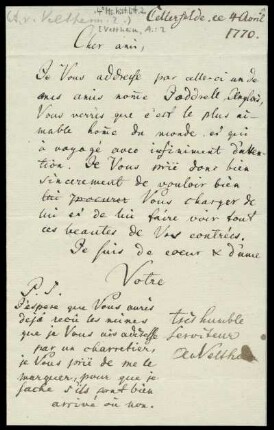 (A. v. Veltheim ?)
[Veltheim, A.:]
Cellerfelde, ce 4 Avril
1770.
Cher ami,
Je Vous addresse par celle-ci un de
mes amis nomé Doddrell Anglois,
Vous verrés que c'est le plus ai-
mable home du monde et qui
a voyagé avec infiniment d'atten-
tion. Je Vous prié donc bien
sincerement de vouloir bien
procurer Vous charger de
lui et de lui faire voir tout
ces beautés de Vos contrées.
Je suis de coeur & d'ame
Votre
très humble
Serviteur
AvVeltheim
P. S.
J'espere que Vous aurés
déja reçu les mines
que je Vous ais addressé
par un charretier,
je Vous prié de me le
marquer, pour que je
sache s'ils sont bien
arrivé ou non.